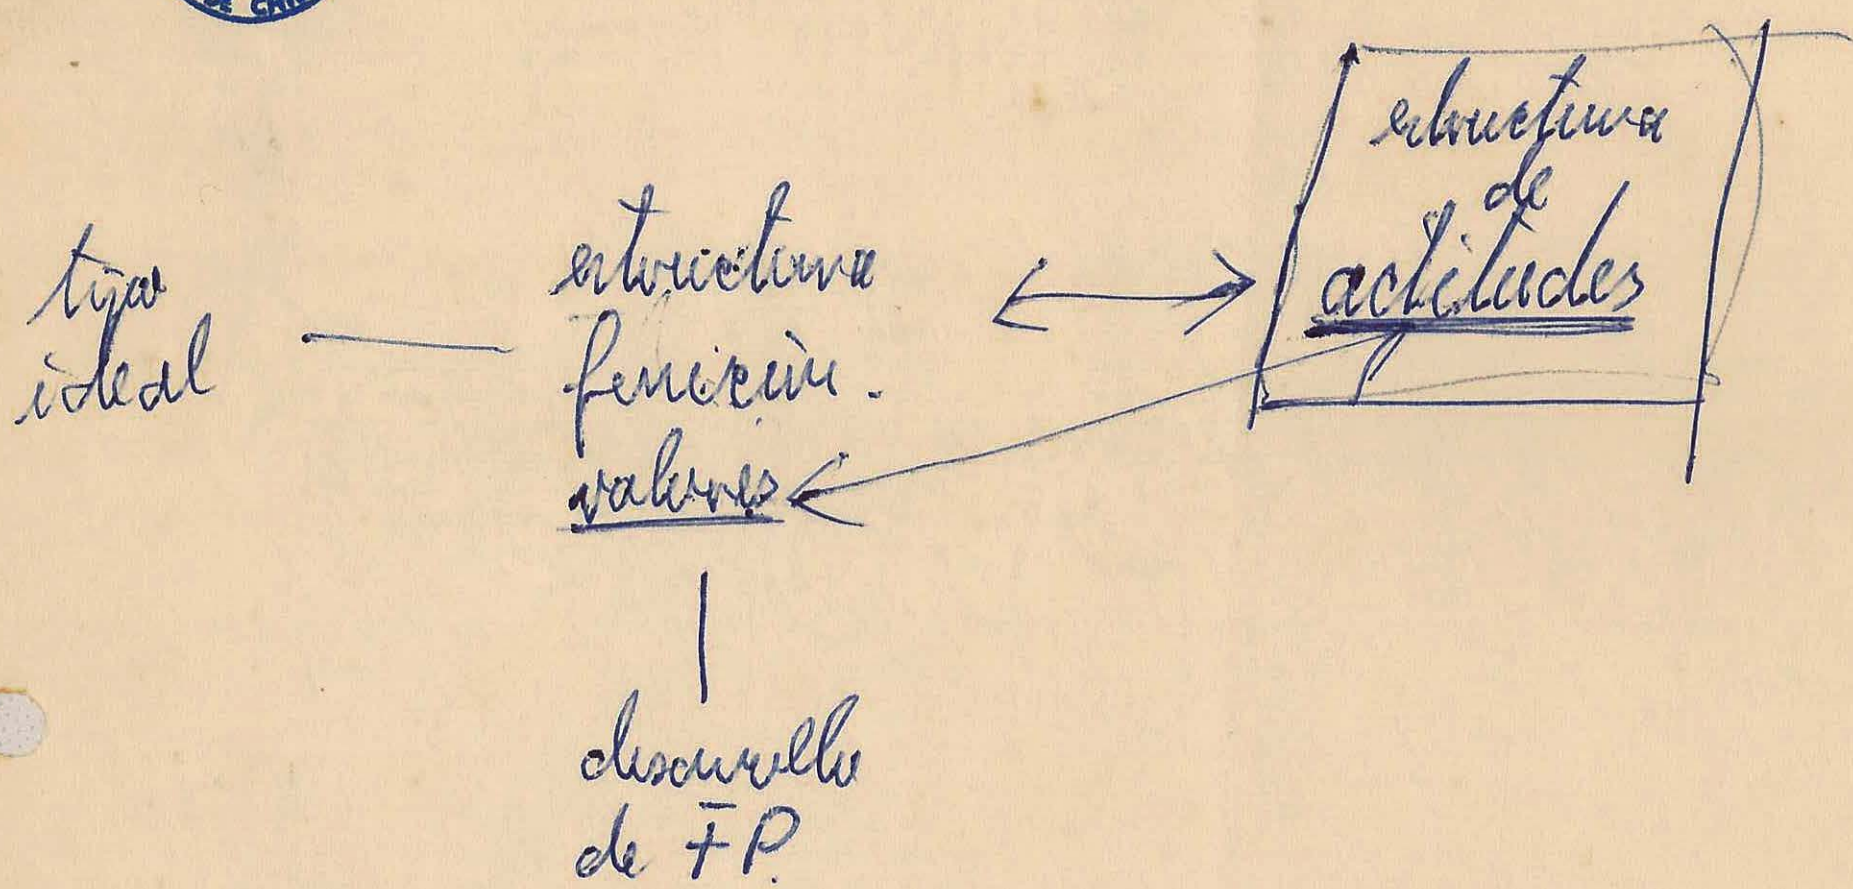 DE CHILE
tipo
ideal
estructura
función.
valores
estructura
de
actitudes
desarrollo
de FP.